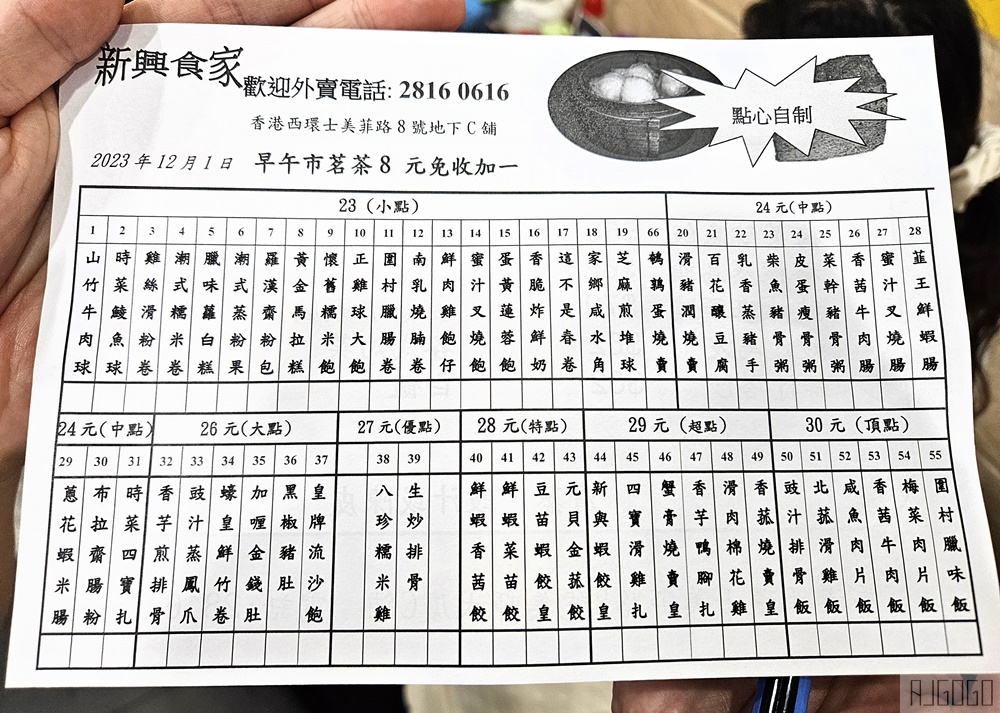 新興食家
歡迎外賣電話: 2816 0616
點心自制
香港西環士美菲路 8 號地下 C 舖
2023 年 12 月 1 日 早午市茗茶 8 元免收加一
23 (小點)
24 元(中點)
1 山竹牛肉球
2 時菜鯪魚球
3 雞絲滑粉卷
4 潮式糯米卷
5 臘味蘿白糕
6 潮式蒸粉果
7 羅漢齋粉包
8 黃金馬拉糕
9 懷舊糯米飽
10 正雞球大飽
11 圍村臘腸卷
12 南乳燒腩卷
13 鮮肉雞飽仔
14 蜜汁叉燒飽
15 蛋黃蓮蓉飽
16 香脆炸鮮奶
17 這不是春卷
18 家鄉咸水角
19 芝麻煎堆球
66 鵪鶉蛋燒賣
20 滑豬潤燒賣
21 百花釀豆腐
22 乳香蒸豬手
23 柴魚豬骨粥
24 皮蛋瘦骨粥
25 菜幹豬骨粥
26 香茜牛肉腸
27 蜜汁叉燒腸
28 韮王鮮蝦腸
24 元(中點)
26 元(大點)
27 元(優點)
28 元(特點)
29 元 (超點)
30 元 (頂點)
29 蔥花蝦米腸
30 布拉齋腸粉
31 時菜四寶扎
32 香芋煎排骨
33 豉汁蒸鳳爪
34 蠔皇鮮竹卷
35 加喱金錢肚
36 黑椒豬肚
37 皇牌流沙飽
38 八珍糯米雞
39 生炒排骨
40 鮮蝦香茜餃
41 鮮蝦菜苗餃
42 豆苗蝦餃皇
43 元貝金菇餃
44 新興蝦餃皇
45 四寶滑雞扎
46 蟹膏燒賣皇
47 香芋鴨腳扎
48 滑肉棉花雞
49 香菇燒賣皇
50 豉汁排骨飯
51 北菇滑雞飯
52 咸魚肉片飯
53 香茜牛肉飯
54 梅菜肉片飯
55 圍村臘味飯
AJGOGO